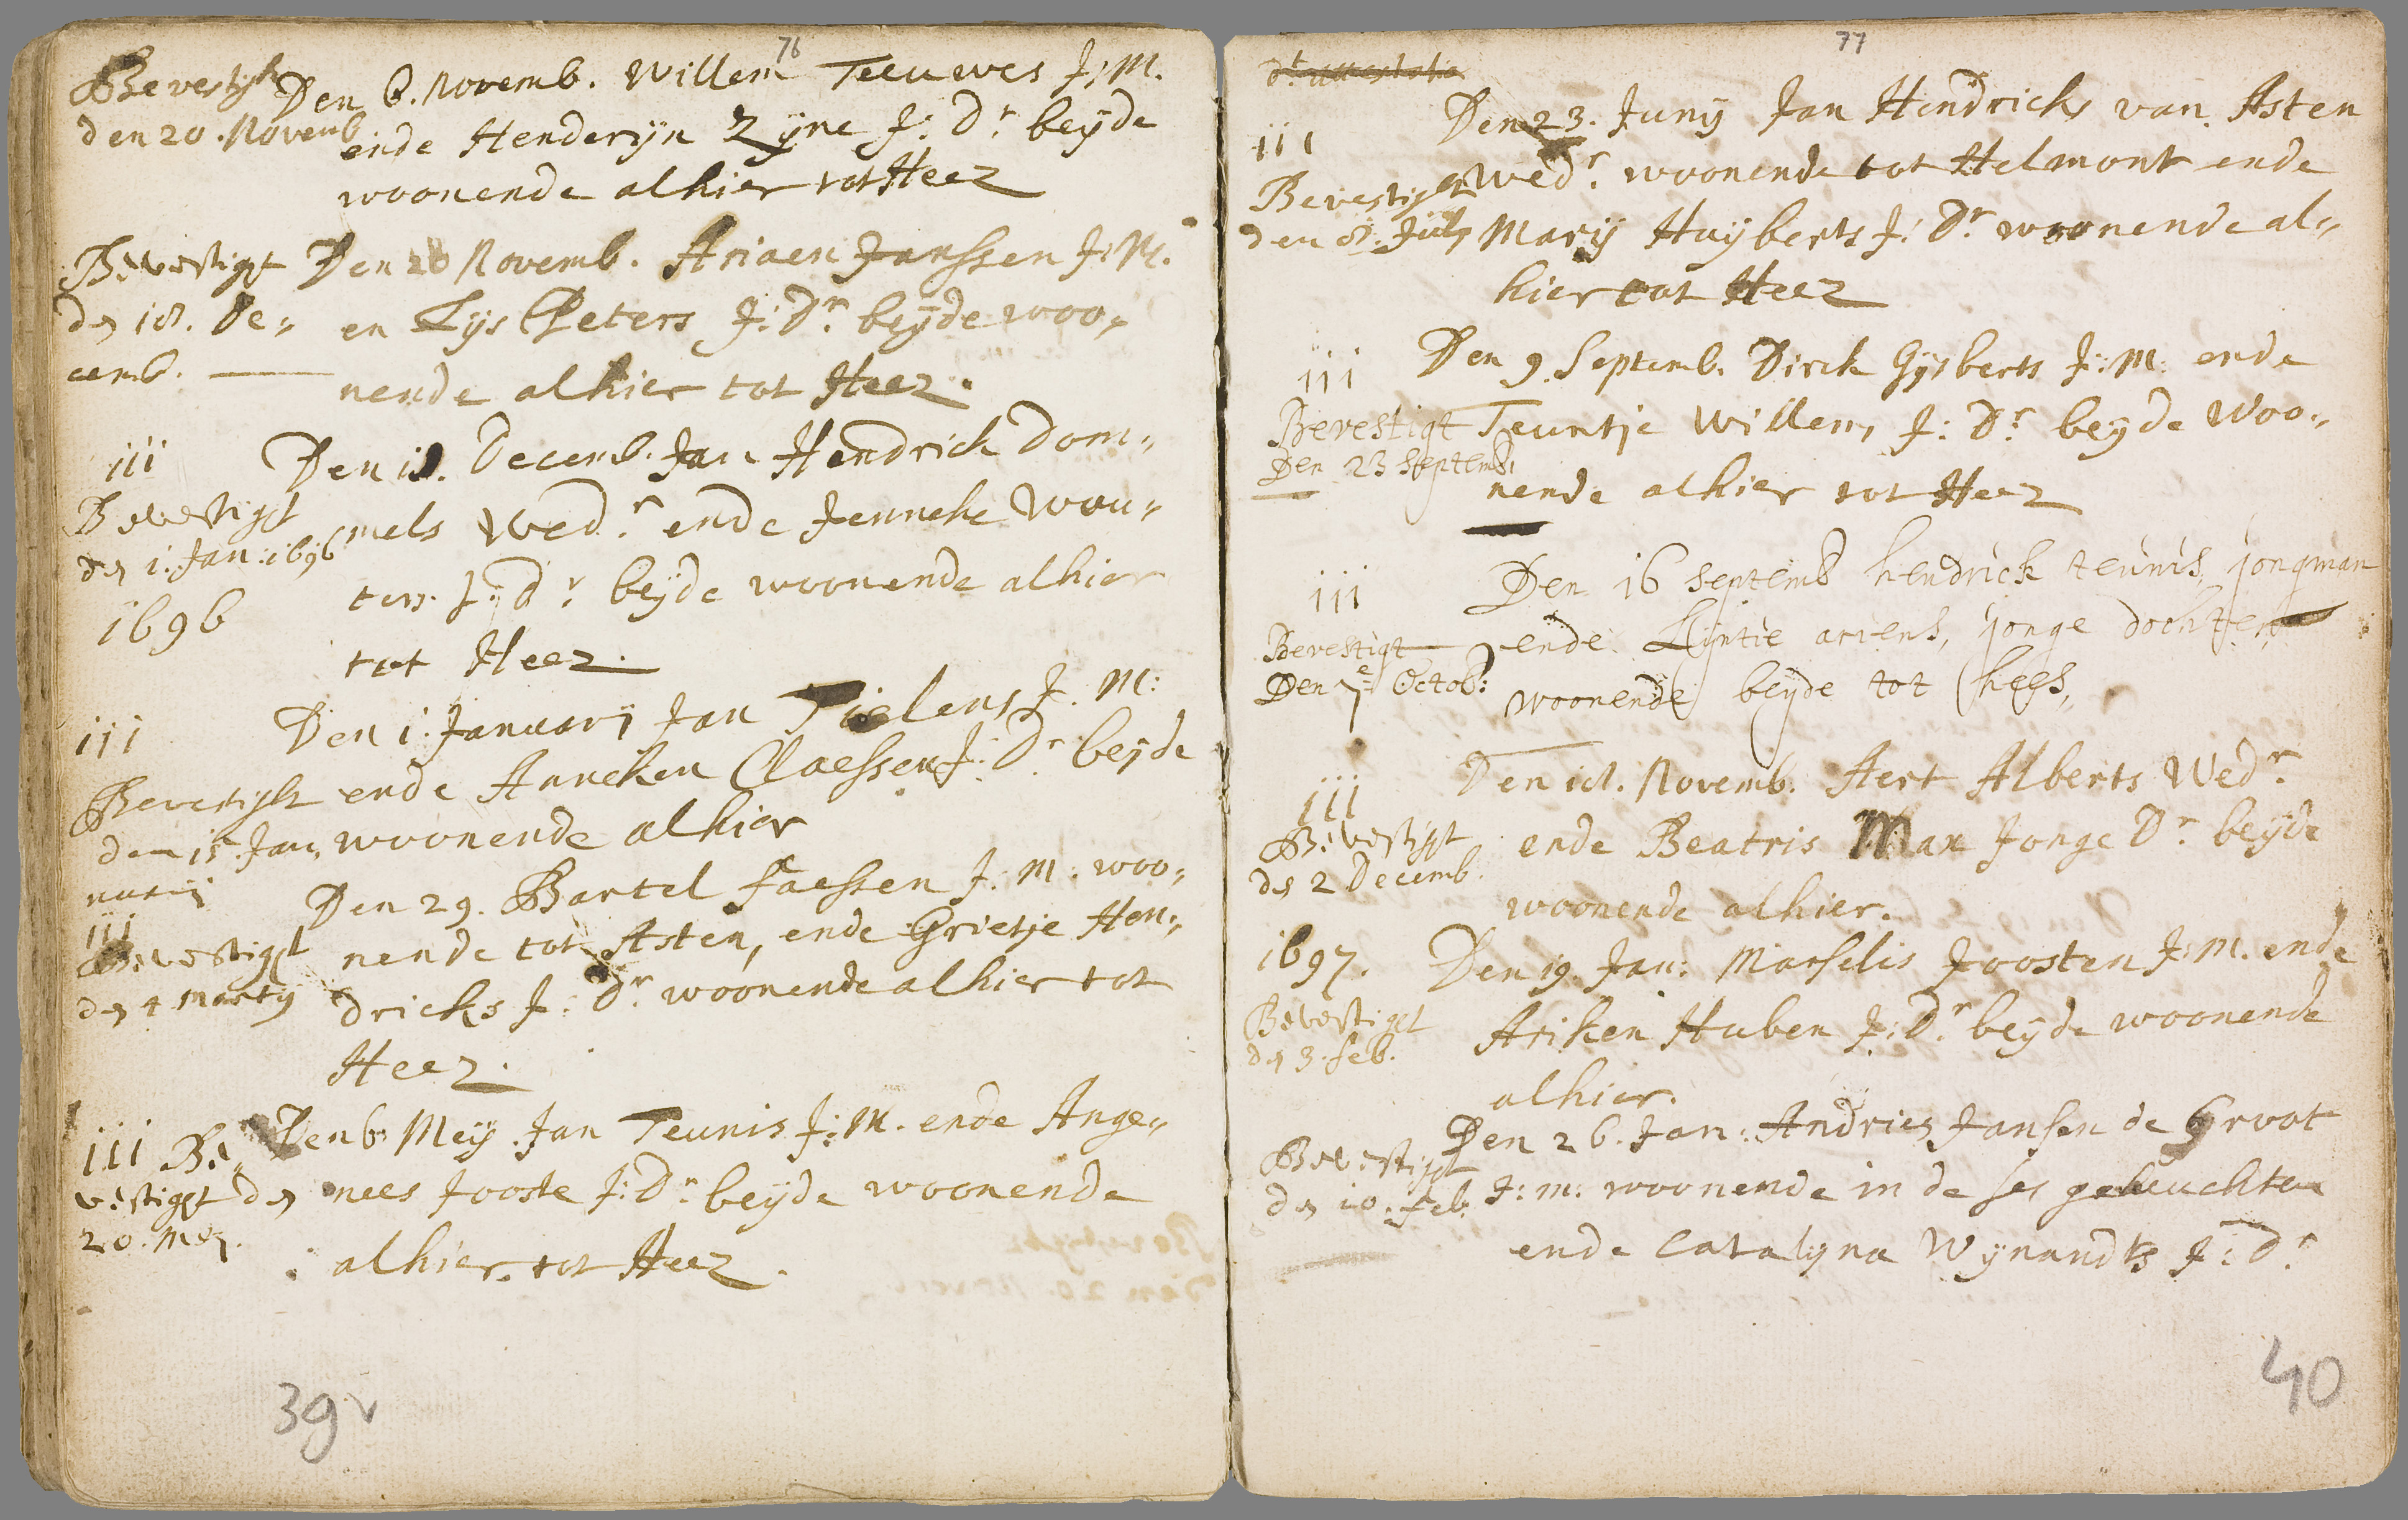 76
Bevestigt
den 20. Novemb
Den 6. Novemb. Willem Teeuwes J: M.
ende Henderijn Zijne J: Dr. beijde
woonende alhier tot Heez
Bevestigt
den 18. De„
cemb.
Den 20 Novemb. Ariaen Janssen J: M.
en Lijs Peters J: Dr. beijde woo„
nende alhier tot Heez.
iii
Bevestigt
den 1. Jan: 1696
1696
Den 18. Decemb. Jan Hendrick Dom„
mels Wedr. ende Jenneke Wou„
ters J: dr. beijde woonende alhier
tot Heez.
iii
Bevestigt
den 15. Jan„
nuarij
Den 1. Januarij Jan Tielens J. M:
ende Anneken Claessen J: Dr. beijde
woonende alhier
iii
Bevestigt
den 4 Martij
Den 29. Bartel faessen J. M. woo„
nende tot Asten, ende Grietje Hen„
dricks J: Dr. woonende alhier tot
Heez.
iii Be„
vestigt den
20. Meij.
Den 6 Meij Jan Teunis J: M. ende Ange„
nees Jooste J: Dr. beijde woonende
alhier tot Heez.
39v
77
iii
Bevestigt
den 8. Julij
Den 23. Junij Jan Hendricks van Asten
Wedr. woonende tot Helmont ende
Marij Huijberts J: Dr. woonende al„
hier tot Heez
iii
Bevestigt
Den 23 Septemb:
Den 9. Septemb. Dirck Gijsberts J: M: ende
Teuntje Willems J: Dr. beijde woo„
nende alhier tot Heez
iii
Bevestigt
Den 7e Octob:
Den 16 septemb hendrick teunis, jongman
ende Lijntie ariens, jonge dochter,
woonende beijde tot hees,
iii
Bevestigt
den 2 Decemb.
Den 18. Novemb. Aert Alberts Wedr.
ende Beatris Max Jonge Dr. beijde
woonende alhier.
1697.
Bevestigt
den 3. feb.
Den 19. Jan: Marselis Joosten J: M. ende
Ariken Huben J: Dr. beijde woonende
alhier.
Bevestigt
den 10. feb.
Den 26. Jan: Andries Jansen de Groot
J: M: woonende in de ses gehuchten
ende Catalijna Wijnandts J: Dr.
40